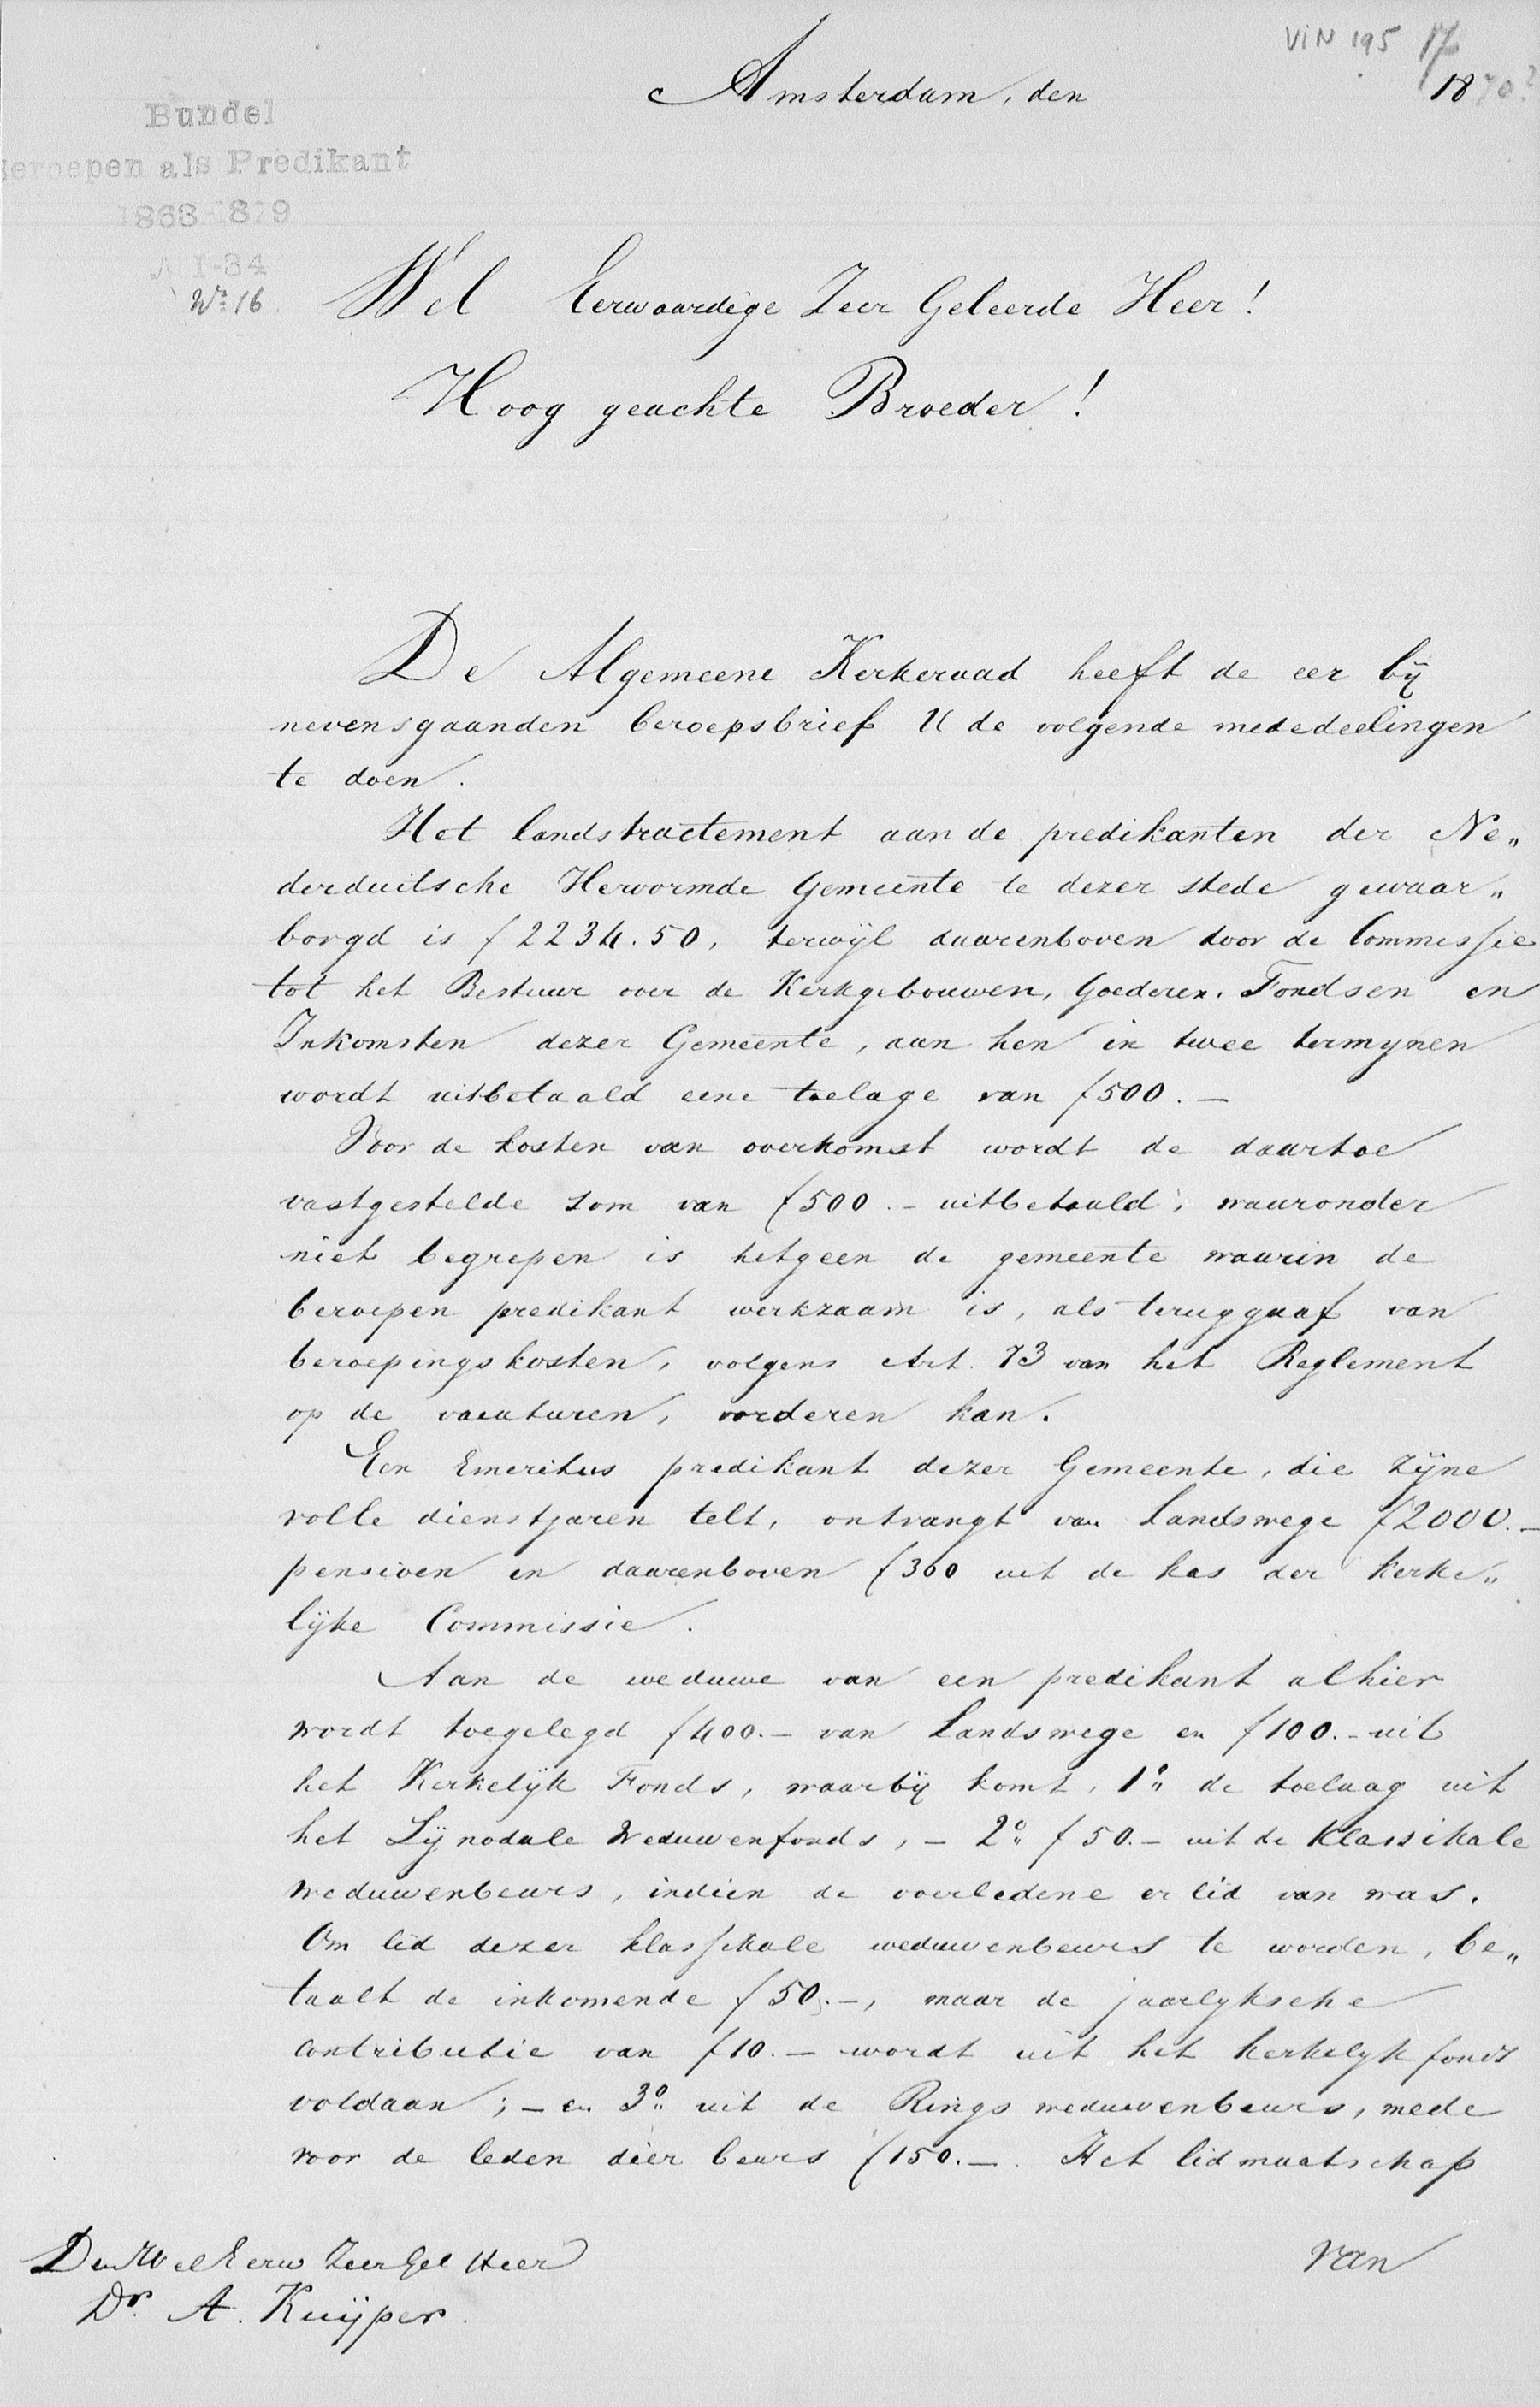 VIN 195 17
Amsterdam, den 1870?
Bundel
Beroepen als Predikant
1868-1879
A I-34
No. 16.
Wel Eerwaardige Zeer Geleerde Heer!
Hoog geachte Broeder!
De Algemeene Kerkeraad heeft de eer bij
nevensgaanden beroepsbrief U de volgende mededeelingen
te doen.
Het landstractement aan de predikanten der Ne„
derduitsche Hervormde Gemeente te dezer stede gewaar„
borgd is f 2234.50, terwijl daarenboven door de Commissie
tot het Bestuur over de Kerkgebouwen, Goederen, Fondsen en
Inkomsten dezer Gemeente, aan hen in twee termynen
wordt uitbetaald eene toelage van f 500.–
Voor de kosten van overkomst wordt de daartoe
vastgestelde som van f 500.– uitbetaald, waaronder
niet begrepen is hetgeen de gemeente waarin de
beroepen predikant werkzaam is, als teruggaaf van
beroepingskosten, volgens Art. 73 van het Reglement
op de vacaturen, vorderen kan.
Een Emeritus predikant dezer Gemeente, die zijne
volle dienstjaren telt, ontvangt van Landswege f 2000.–
pensioen en daarenboven f 360 uit de kas der kerke„
lijke Commissie.
Aan de weduwe van een predikant alhier
wordt toegelegd f 400.– van Landswege en f 100.– uit
het Kerkelijk Fonds, waarbij komt, 1o. de toelaag uit
het Synodale Weduwenfonds, – 2o. f 50.– uit de Klassikale
weduwenbeurs, indien de overledene er lid van was.
Om lid dezer klassikale weduwenbeurs te worden, be„
taalt de inkomende f 50.–, maar de jaarlyksche
contributie van f 10.– wordt uit het kerkelyk fonds
voldaan; – en 3o. uit de Rings weduwenbeurs, mede
voor de leden dier beurs f 150.–. Het lidmaatschap
van
Den Wel Eerw Zeer Gel Heer
Dr. A. Kuijper.